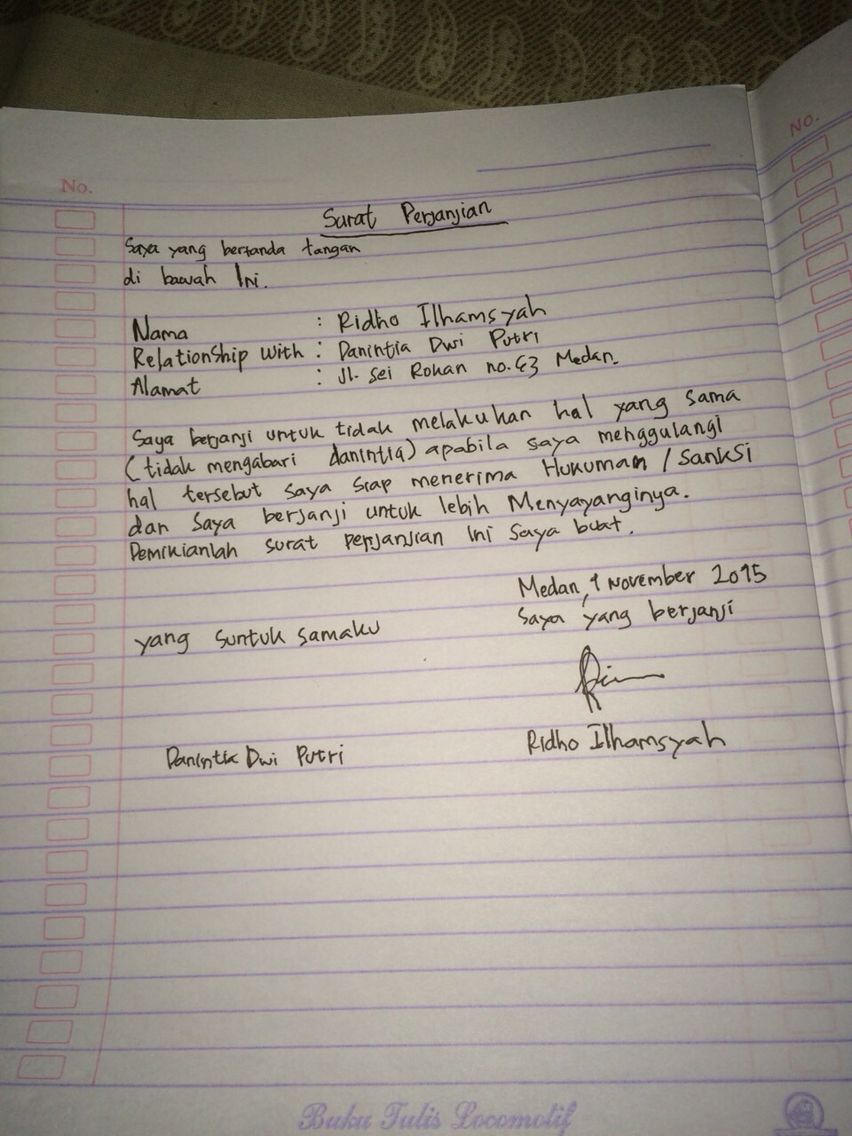 No.
No.
Surat Perjanjian
Saya yang bertanda tangan
di bawah Ini.
Nama : Ridho Ilhamsyah
Relationship With : Danintia Dwi Putri
Alamat : Jl. Sei Rokan no. 43 Medan.
Saya berjanji untuk tidak melakukan hal yang sama
(tidak mengabari danintia) apabila saya menggulangi
hal tersebut saya siap menerima Hukuman / Sanksi
dan Saya berjanji untuk lebih Menyayanginya.
Demikianlah surat perjanjian Ini Saya buat.
Medan, 1 November 2015
yang suntuk samaku
Saya yang berjanji
Danintia Dwi Putri
Ridho Ilhamsyah
Buku Tulis Locomotif